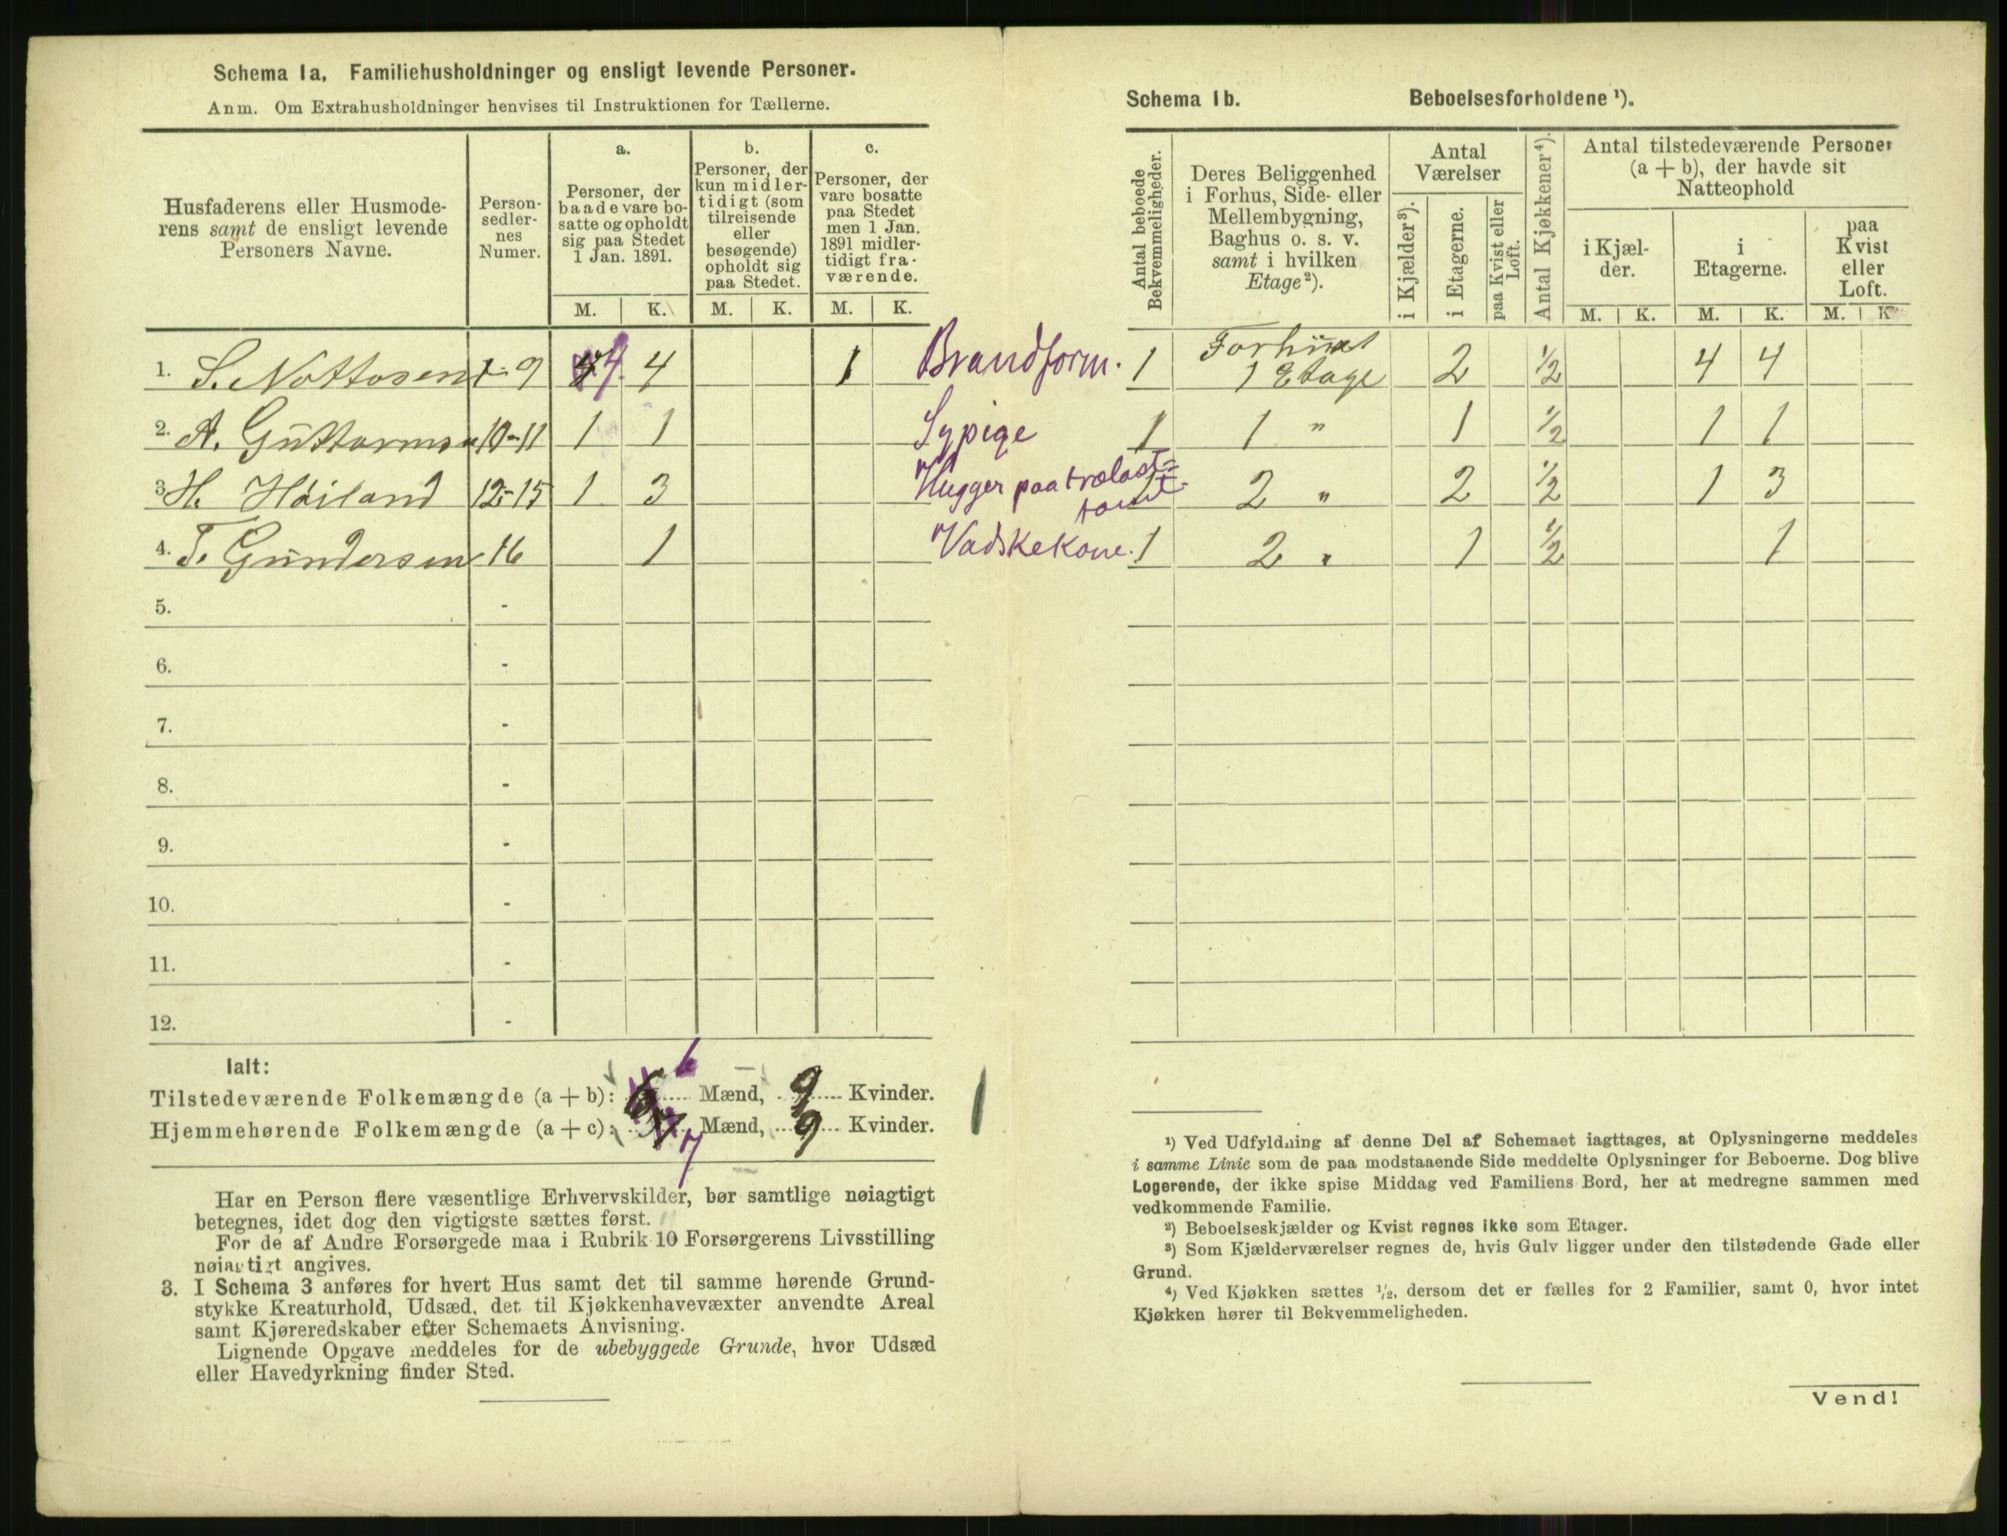 Schema 1a. Familiehusholdninger og ensligt levende Personer.
Anm. Om Extrahusholdninger henvises til Instruktionen for Tællerne.
Husfaderens eller Husmoderens samt de ensligt levende Personers Navne.
Personsedlernes Numer.
a. Personer, der baade vare bosatte og opholdt sig paa Stedet 1 Jan. 1891.
b. Personer, der kun midlertidigt (som tilreisende eller besøgende) opholdt sig paa Stedet.
c. Personer, der vare bosatte paa Stedet men 1 Jan. 1891 midlertidigt fraværende.
M. K. M. K. M. K.
1. S. Nottosen 1-9 4 4 1 Brandform.
2. A. Guttormsen 10-11 1 1 Sypige
3. H. Høiland 12-15 1 3 Hugger paa trælast=
tomt.
4. T. Gundersen 16 1 Vadskekone.
5. -
6. -
7. -
8. -
9. -
10. -
11. -
12. -
Ialt:
Tilstedeværende Folkemængde (a + b): 6 Mænd, 9 Kvinder.
Hjemmehørende Folkemængde (a + c): 7 Mænd, 9 Kvinder.
Har en Person flere væsentlige Erhvervskilder, bør samtlige nøiagtigt
betegnes, idet dog den vigtigste sættes først.
For de af Andre Forsørgede maa i Rubrik 10 Forsørgerens Livsstilling
nøiagtigt angives.
3. I Schema 3 anføres for hvert Hus samt det til samme hørende Grund-
stykke Kreaturhold, Udsæd, det til Kjøkkenhavevæxter anvendte Areal
samt Kjøreredskaber efter Schemaets Anvisning.
Lignende Opgave meddeles for de ubebyggede Grunde, hvor Udsæd
eller Havedyrkning finder Sted.
Schema 1b. Beboelsesforholdene ¹).
Antal beboede Bekvemmeligheder.
Deres Beliggenhed i Forhus, Side- eller Mellembygning, Baghus o. s. v. samt i hvilken Etage ²).
Antal Værelser
i Kjælder ³).
i Etagerne.
paa Kvist eller Loft.
Antal Kjøkkener ⁴).
Antal tilstedeværende Personer (a + b), der havde sit Natteophold
i Kjælder.
i Etagerne.
paa Kvist eller Loft.
M. K. M. K. M. K
1 Forhuset
1 Etage 2 1/2 4 4
1 1 " 1 1/2 1 1
2 " 2 1/2 1 3
1 2 " 1 1/2 1
¹) Ved Udfyldning af denne Del af Schemaet iagttages, at Oplysningerne meddeles
i samme Linie som de paa modstaaende Side meddelte Oplysninger for Beboerne. Dog blive
Logerende, der ikke spise Middag ved Familiens Bord, her at medregne sammen med
vedkommende Familie.
²) Beboelseskjælder og Kvist regnes ikke som Etager.
³) Som Kjælderværelser regnes de, hvis Gulv ligger under den tilstødende Gade eller
Grund.
⁴) Ved Kjøkken sættes ¹/₂, dersom det er fælles for 2 Familier, samt 0, hvor intet
Kjøkken hører til Bekvemmeligheden.
Vend!